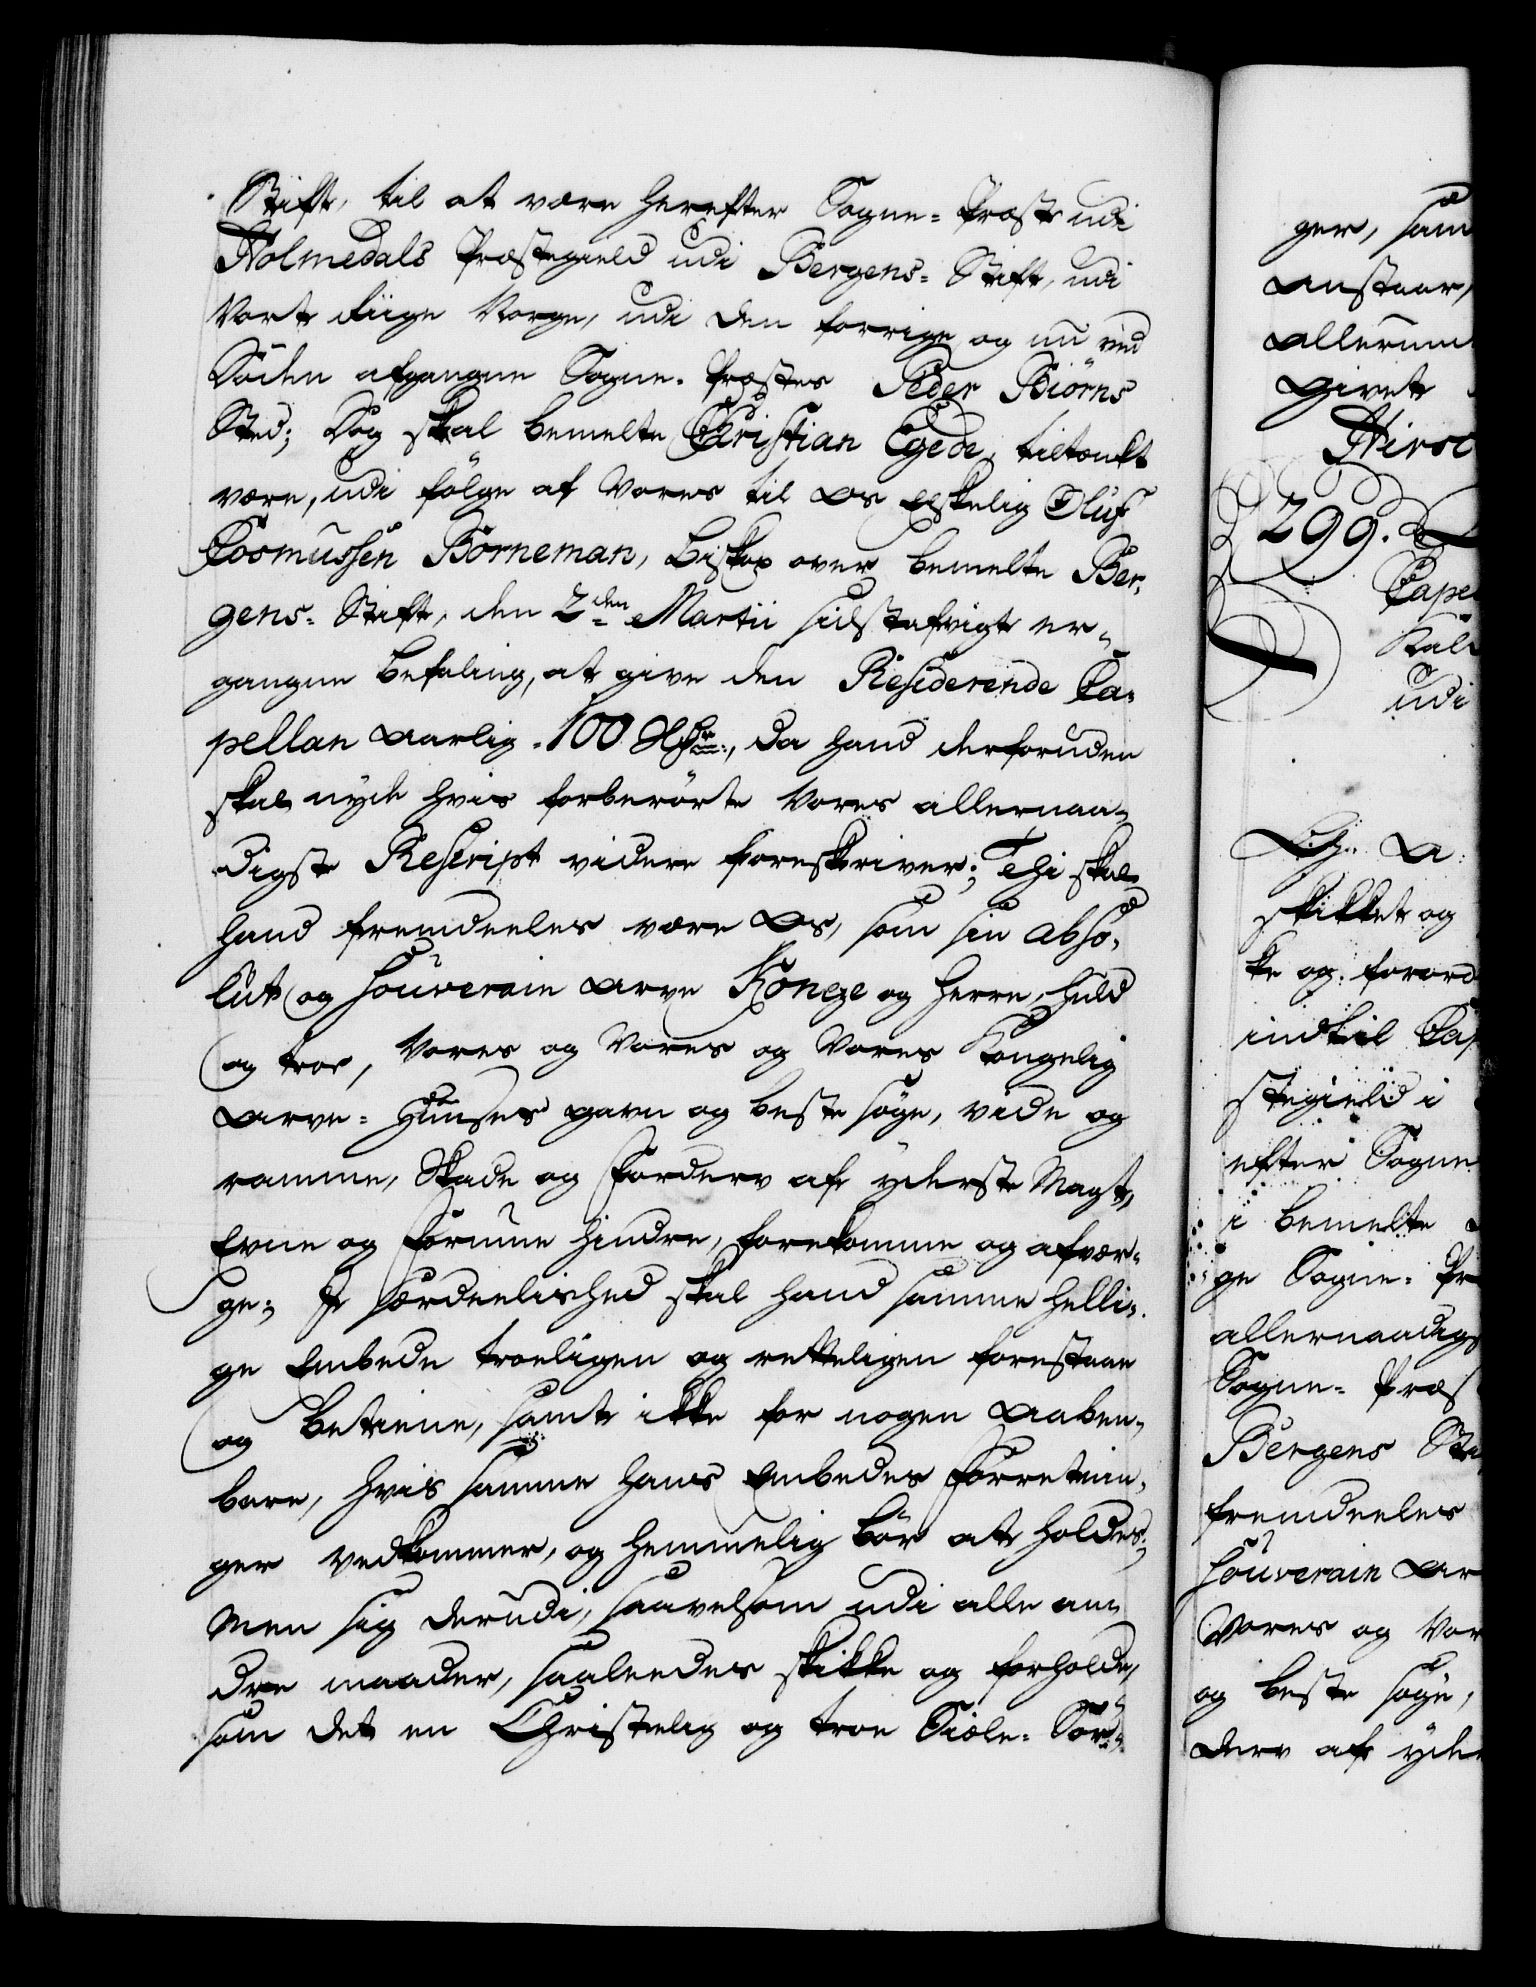 Stift, til at være herefter Sogne-Præst udi
Holmedals Præstegield udi Bergens-Stift, udi
Vort Riige Norge, udi den forrige og nu ved
Døden afgangne Sogne-Præstes Peder Biörns
Sted; Dog skal bemelte Christian Egede, tiltenkt
være, udi følge af Vores til Os Elskelig Oluf
Cosmussen Borneman, Biskop over bemelte Ber,
gens-Stift, den 2den Martii sidstafvigt er,
gangne befaling, at give den Residerende Ca-
pellan aarlig 100 Rdr:, da hand derforuden
skal nyde hvis forberørte Vores allernaa,
digste Rescript videre foreskriver; Thi skal
hand fremdeeles være Os, som sin abso,
lut og Souverain Arve Konge og Herre, huld
og troe, Vores og Vores og Vores Kongelig
Arve-Huuses gavn og beste søge, vide og
ramme, Skade og Forderv af yderste Magt,
Evne og Formue hindre, forekomme og afvær-
ge; I særdeelished skal hand samme Helli-
ge Embede troeligen og retteligen forestaae
og betiene, samt ikke for nogen Aaben,
bare, hvis samme hans Embedes Forretnin,
ger vedkommer, og hemmelig bør at holdes;
Men sig derudi, saavelsom udi alle an,
dre maader, saaleedes skikke og forholde,
som det en Christelig og troe Siæle-Sør,
ger, sam
anstaar,
allerund
givet
Hirsc
299.
Cape
Kal
udi
skikket og
ke og forord
indtil Cap
stegield i
efter Sogne
i bemelte
ge Sogne-Pr
allernaadigs
Sogne-Præs
Bergens Sti
fremdeeles
Souverain Ar
Vores og Vor
og beste søge,
derv af yder